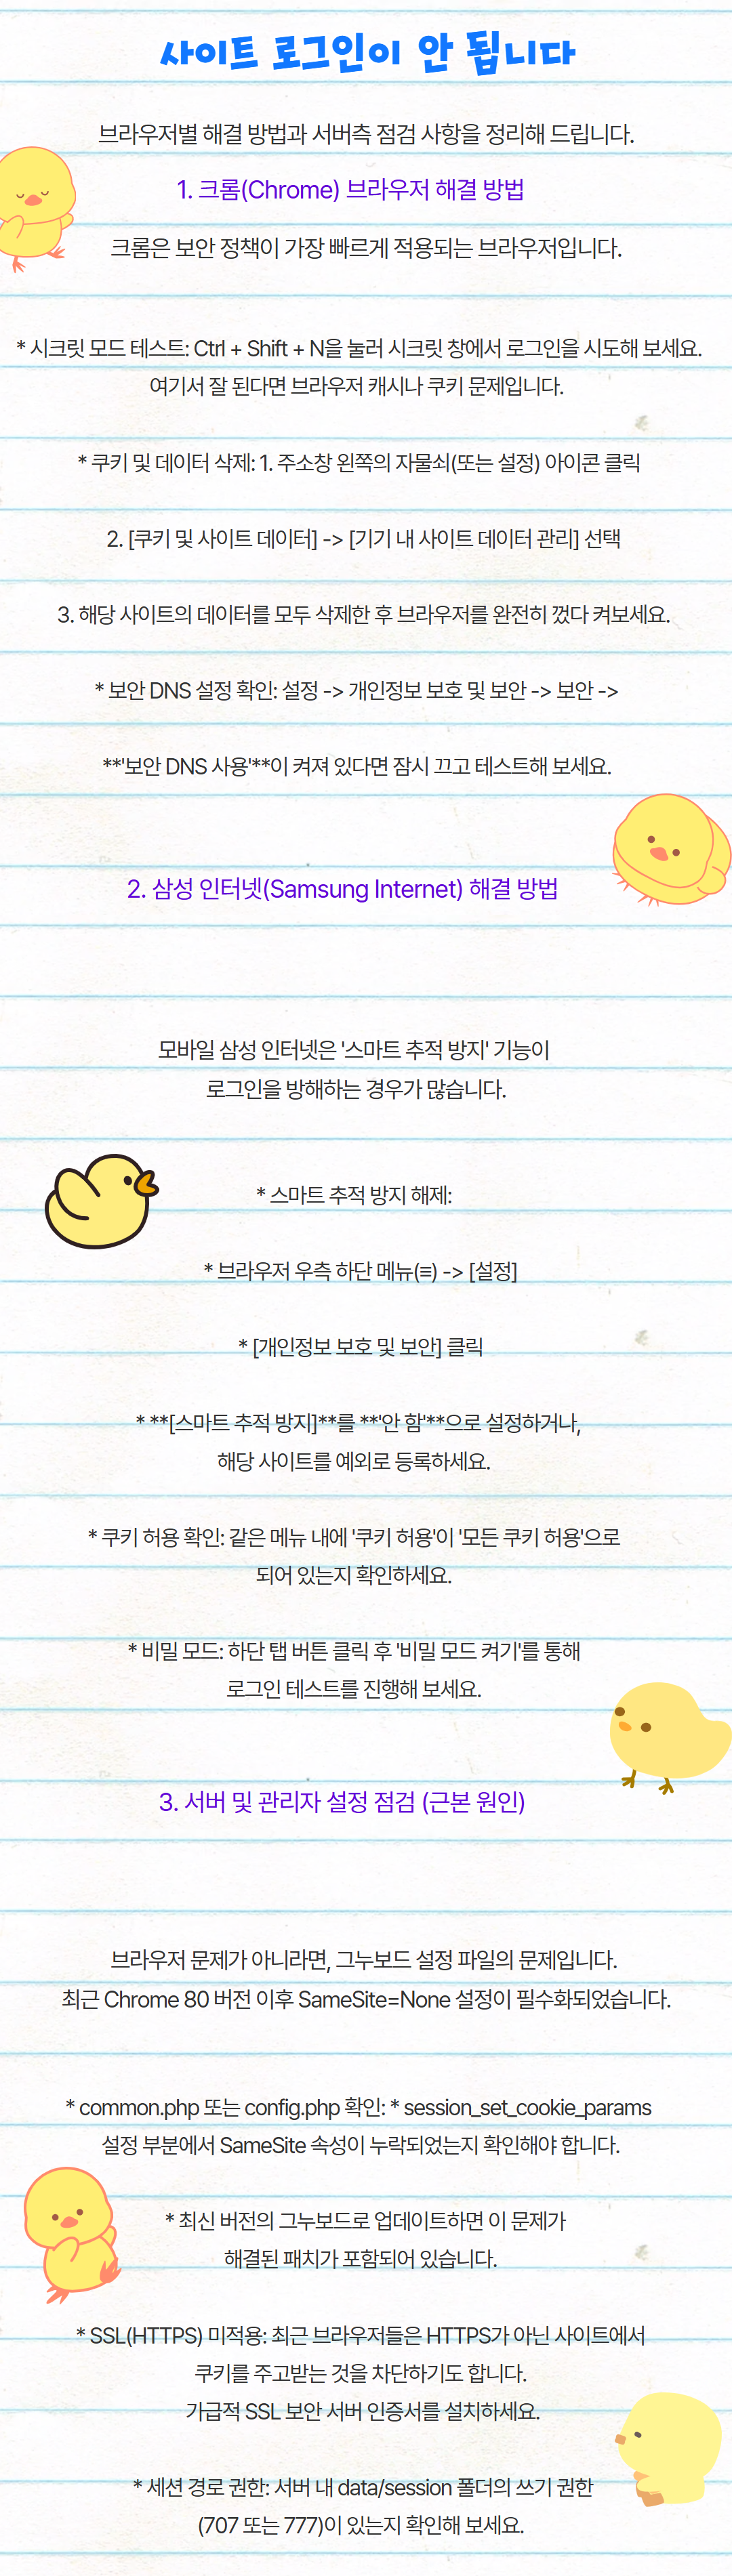 사이트 로그인이 안 됩니다
브라우저별 해결 방법과 서버측 점검 사항을 정리해 드립니다.
1. 크롬(Chrome) 브라우저 해결 방법
크롬은 보안 정책이 가장 빠르게 적용되는 브라우저입니다.
* 시크릿 모드 테스트: Ctrl + Shift + N을 눌러 시크릿 창에서 로그인을 시도해 보세요.
여기서 잘 된다면 브라우저 캐시나 쿠키 문제입니다.
* 쿠키 및 데이터 삭제: 1. 주소창 왼쪽의 자물쇠(또는 설정) 아이콘 클릭
2. [쿠키 및 사이트 데이터] -> [기기 내 사이트 데이터 관리] 선택
3. 해당 사이트의 데이터를 모두 삭제한 후 브라우저를 완전히 껐다 켜보세요.
* 보안 DNS 설정 확인: 설정 -> 개인정보 보호 및 보안 -> 보안 ->
**'보안 DNS 사용'**이 켜져 있다면 잠시 끄고 테스트해 보세요.
2. 삼성 인터넷(Samsung Internet) 해결 방법
모바일 삼성 인터넷은 '스마트 추적 방지' 기능이
로그인을 방해하는 경우가 많습니다.
* 스마트 추적 방지 해제:
* 브라우저 우측 하단 메뉴(≡) -> [설정]
* [개인정보 보호 및 보안] 클릭
* **[스마트 추적 방지]**를 **'안 함'**으로 설정하거나,
해당 사이트를 예외로 등록하세요.
* 쿠키 허용 확인: 같은 메뉴 내에 '쿠키 허용'이 '모든 쿠키 허용'으로
되어 있는지 확인하세요.
* 비밀 모드: 하단 탭 버튼 클릭 후 '비밀 모드 켜기'를 통해
로그인 테스트를 진행해 보세요.
3. 서버 및 관리자 설정 점검 (근본 원인)
브라우저 문제가 아니라면, 그누보드 설정 파일의 문제입니다.
최근 Chrome 80 버전 이후 SameSite=None 설정이 필수화되었습니다.
* common.php 또는 config.php 확인: * session_set_cookie_params
설정 부분에서 SameSite 속성이 누락되었는지 확인해야 합니다.
* 최신 버전의 그누보드로 업데이트하면 이 문제가
해결된 패치가 포함되어 있습니다.
* SSL(HTTPS) 미적용: 최근 브라우저들은 HTTPS가 아닌 사이트에서
쿠키를 주고받는 것을 차단하기도 합니다.
가급적 SSL 보안 서버 인증서를 설치하세요.
* 세션 경로 권한: 서버 내 data/session 폴더의 쓰기 권한
(707 또는 777)이 있는지 확인해 보세요.